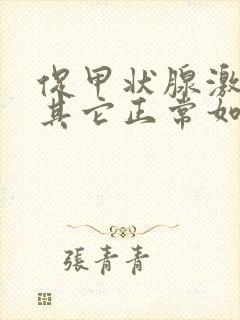 促甲状腺激
其它正常如
張青青